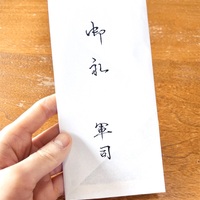 御礼
軍司